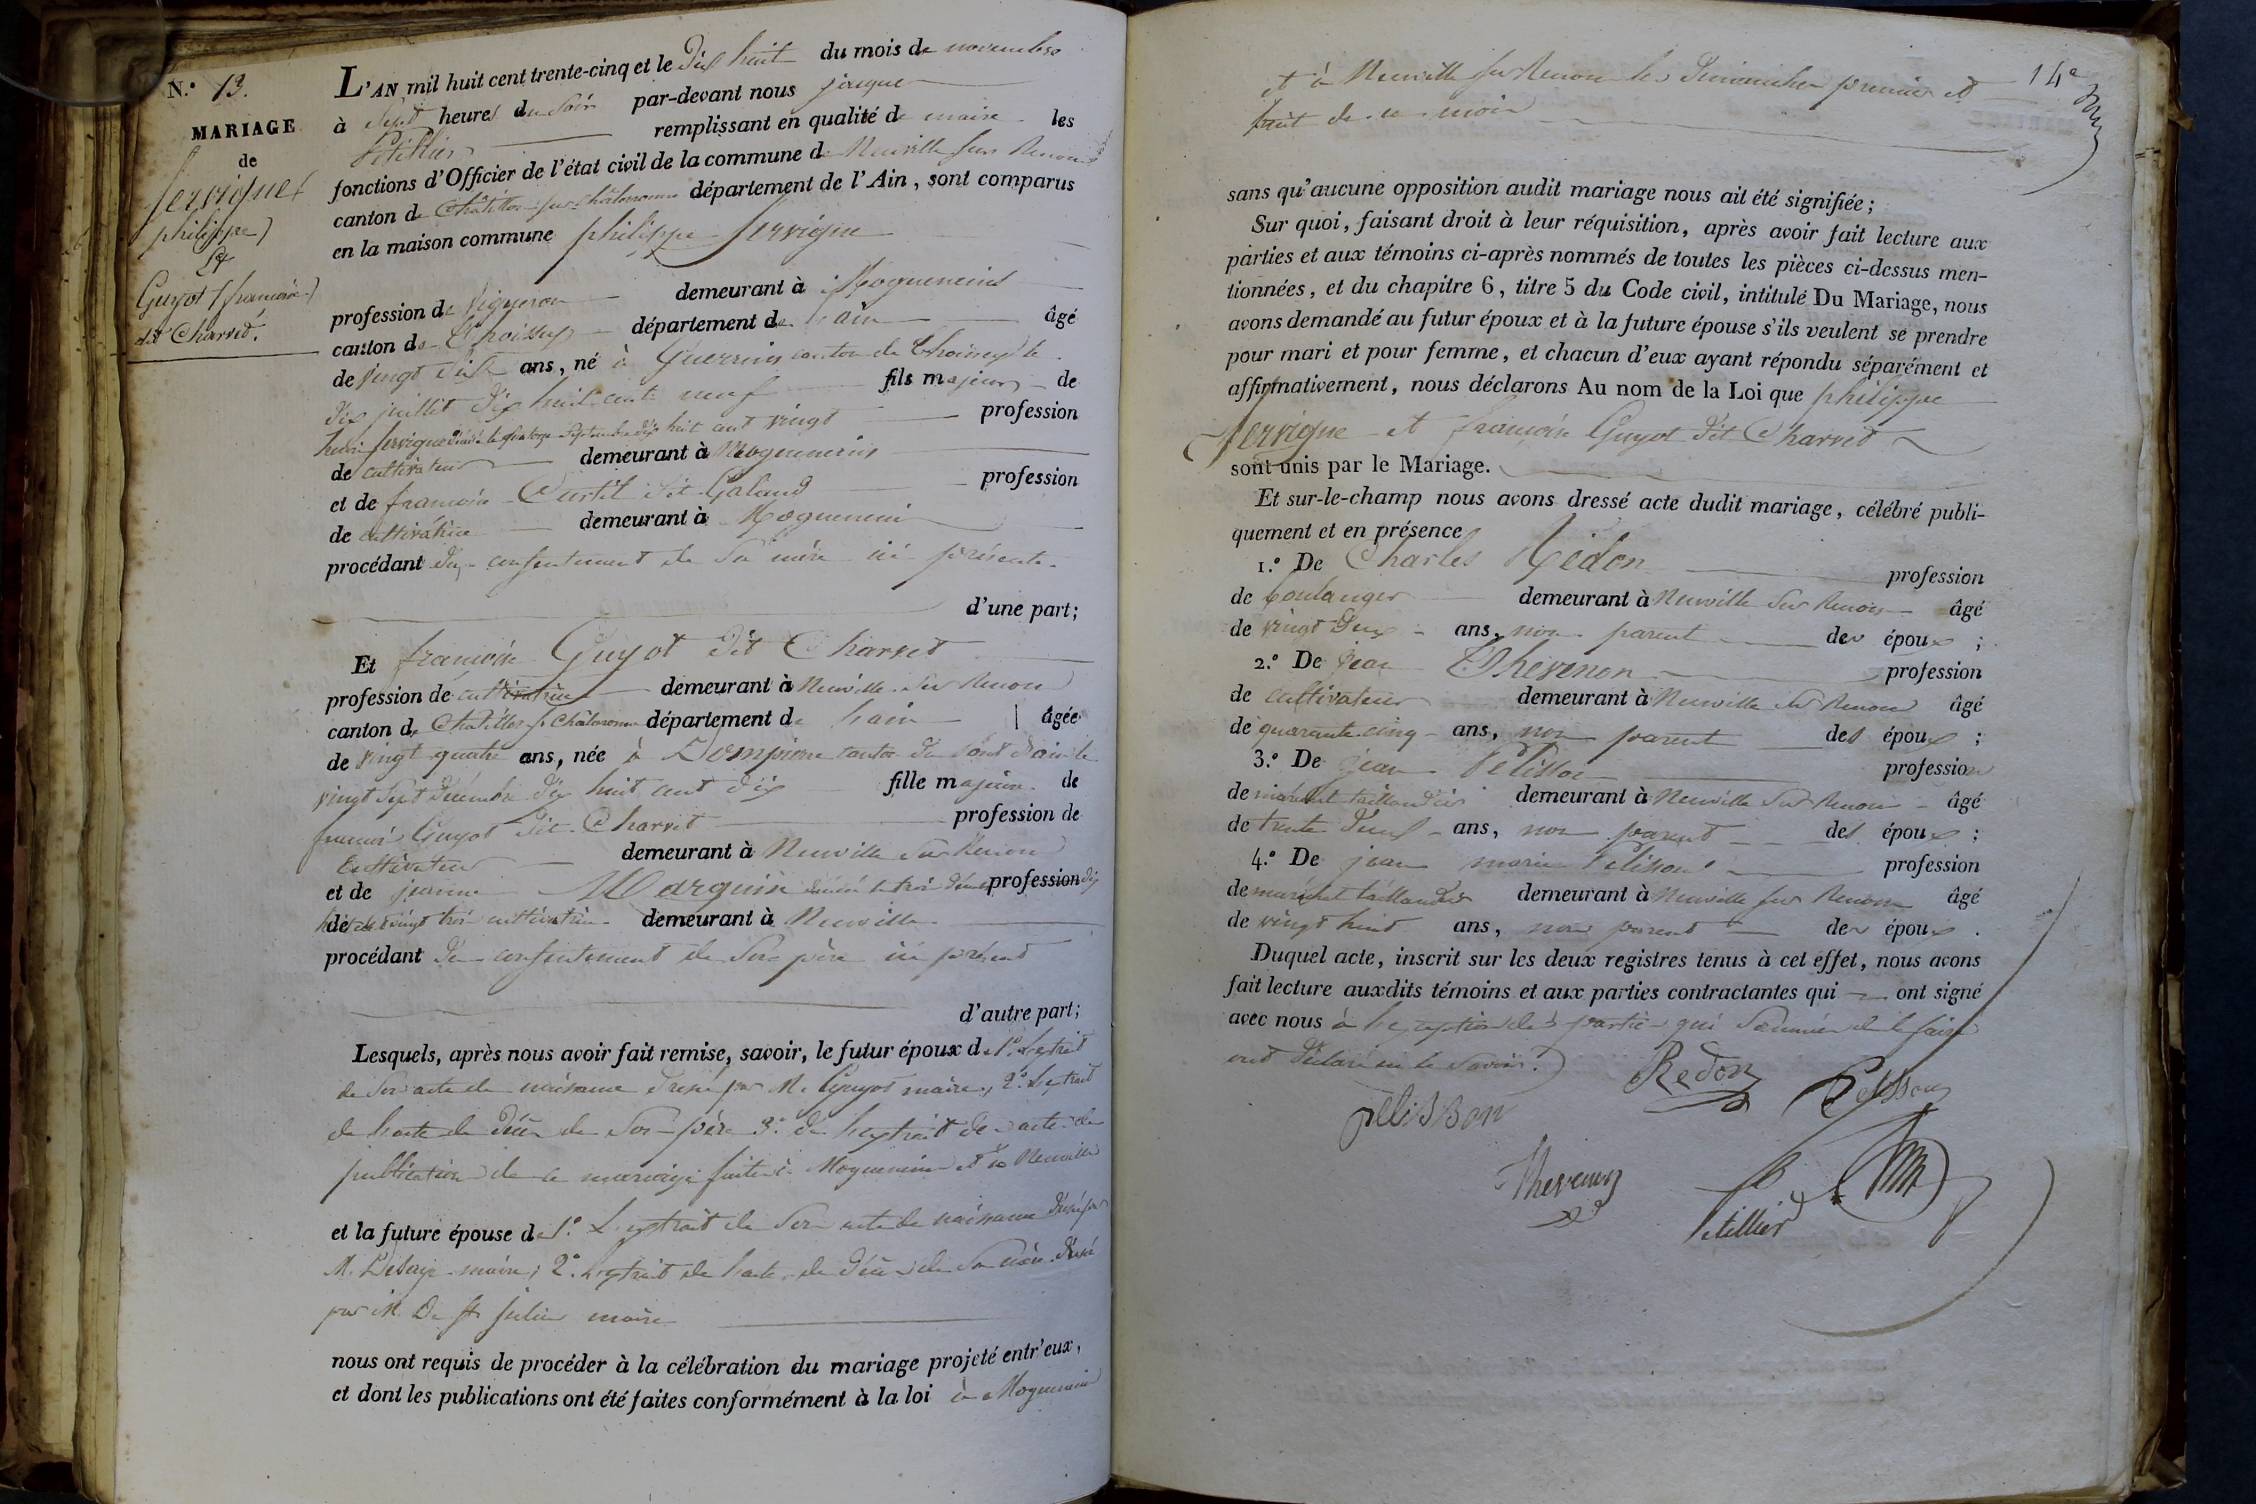 N.º 13.
MARIAGE
de
Servigne
(philippe)
Et
Guyot (françoise)
dit Charvet.
L'AN mil huit cent trente-cinq et le dix huit du mois de novembre
à sept heures du soir par-devant nous jacque
Petillier remplissant en qualité de maire les
fonctions d'Officier de l'état civil de la commune de Neuville sur Renom
canton de Châtillon sur Chalaronne département de l'Ain, sont comparus
en la maison commune philippe Servigne
profession de Vigneron demeurant à Mogneneins
canton de Thoissey département de lain âgé
de vingt six ans, né à Guerreins canton de Thoissey le
dix juillet dix huit cent neuf fils majeur de
henri Servigne décédé le quatorze septembre dix huit cent vingt profession
de cultivateur demeurant à Mogneneins
et de françoise Curtil dit Galand profession
de cultivatrice demeurant à Mogneneins
procédant du consentement de sa mère ici présente
d'une part;
Et françoise Guyot dit Charvet
profession de cultivatrice demeurant à Neuville sur Renom
canton de Chatillon s Chalaronne département de lain âgée
de vingt quatre ans, née à Dompierre canton de pont dain le
vingt sept décembre dix huit cent dix fille majeure de
françois Guyot dit Charvet profession de
Cultivateur demeurant à Neuville sur Renom
et de jeanne Marguin décédé le trois profession dix
de huit cent vingt trois cultivatrice demeurant à Neuville
procédant du consentement de son père ici présent
d'autre part;
Lesquels, après nous avoir fait remise, savoir, le futur époux de 1º. Lextrait
de son acte de naissance dressé par M. Guyot maire, 2º. Lextrait
de lacte de décès de son père 3º. de lextrait de acte de
publication de ce mariage faite à Mogneneins et à Neuville
et la future épouse de 1º. Lextrait de son acte de naissance dressé par
M. maire; 2º. Lextrait de lacte de décès de sa mère dressé
par M. De St julien maire
nous ont requis de procéder à la célébration du mariage projeté entr'eux,
et dont les publications ont été faites conformément à la loi à Mogneneins
14e
et à Neuville sur Renom les Dimanches premier et
huit de ce mois
sans qu'aucune opposition audit mariage nous ait été signifiée;
Sur quoi, faisant droit à leur réquisition, après avoir fait lecture aux
parties et aux témoins ci-après nommés de toutes les pièces ci-dessus men-
tionnées, et du chapitre 6, titre 5 du Code civil, intitulé Du Mariage, nous
avons demandé au futur époux et à la future épouse s'ils veulent se prendre
pour mari et pour femme, et chacun d'eux ayant répondu séparément et
affirmativement, nous déclarons Au nom de la Loi que philippe
Servigne et françoise Guyot dit Charvet
sont unis par le Mariage.
Et sur-le-champ nous avons dressé acte dudit mariage, célébré publi-
quement et en présence
1.º De Charles Redon profession
de boulanger demeurant à Neuville sur Renom âgé
de vingt deux ans, non parent des époux;
2.º De jean Thevenon profession
de cultivateur demeurant à Neuville sur Renom âgé
de quarante cinq ans, non parent des époux;
3.º De jean Pelisson profession
de maréchal taillandier demeurant à Neuville sur Renom âgé
de trente deux ans, non parent des époux;
4.º De jean marie Pelisson profession
de maréchal taillandier demeurant à Neuville sur Renom âgé
de vingt huit ans, non parent des époux.
Duquel acte, inscrit sur les deux registres tenus à cet effet, nous avons
fait lecture auxdits témoins et aux parties contractantes qui ont signé
avec nous à lexception des parties qui de le faire
ont déclaré ne le savoir.
Redon
Pelisson
pelisson
Thevenon
Petillier